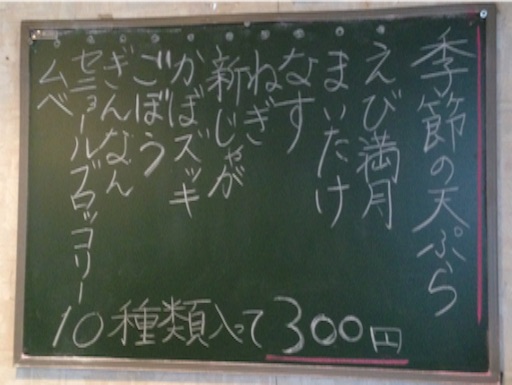 季節の天ぷら
えび満月
まいたけ
なす
ねぎ
新じゃが
かぼズッキ
ごぼう
ぎんなん
セニョールブロッコリー
ムベ
10種類入って300円